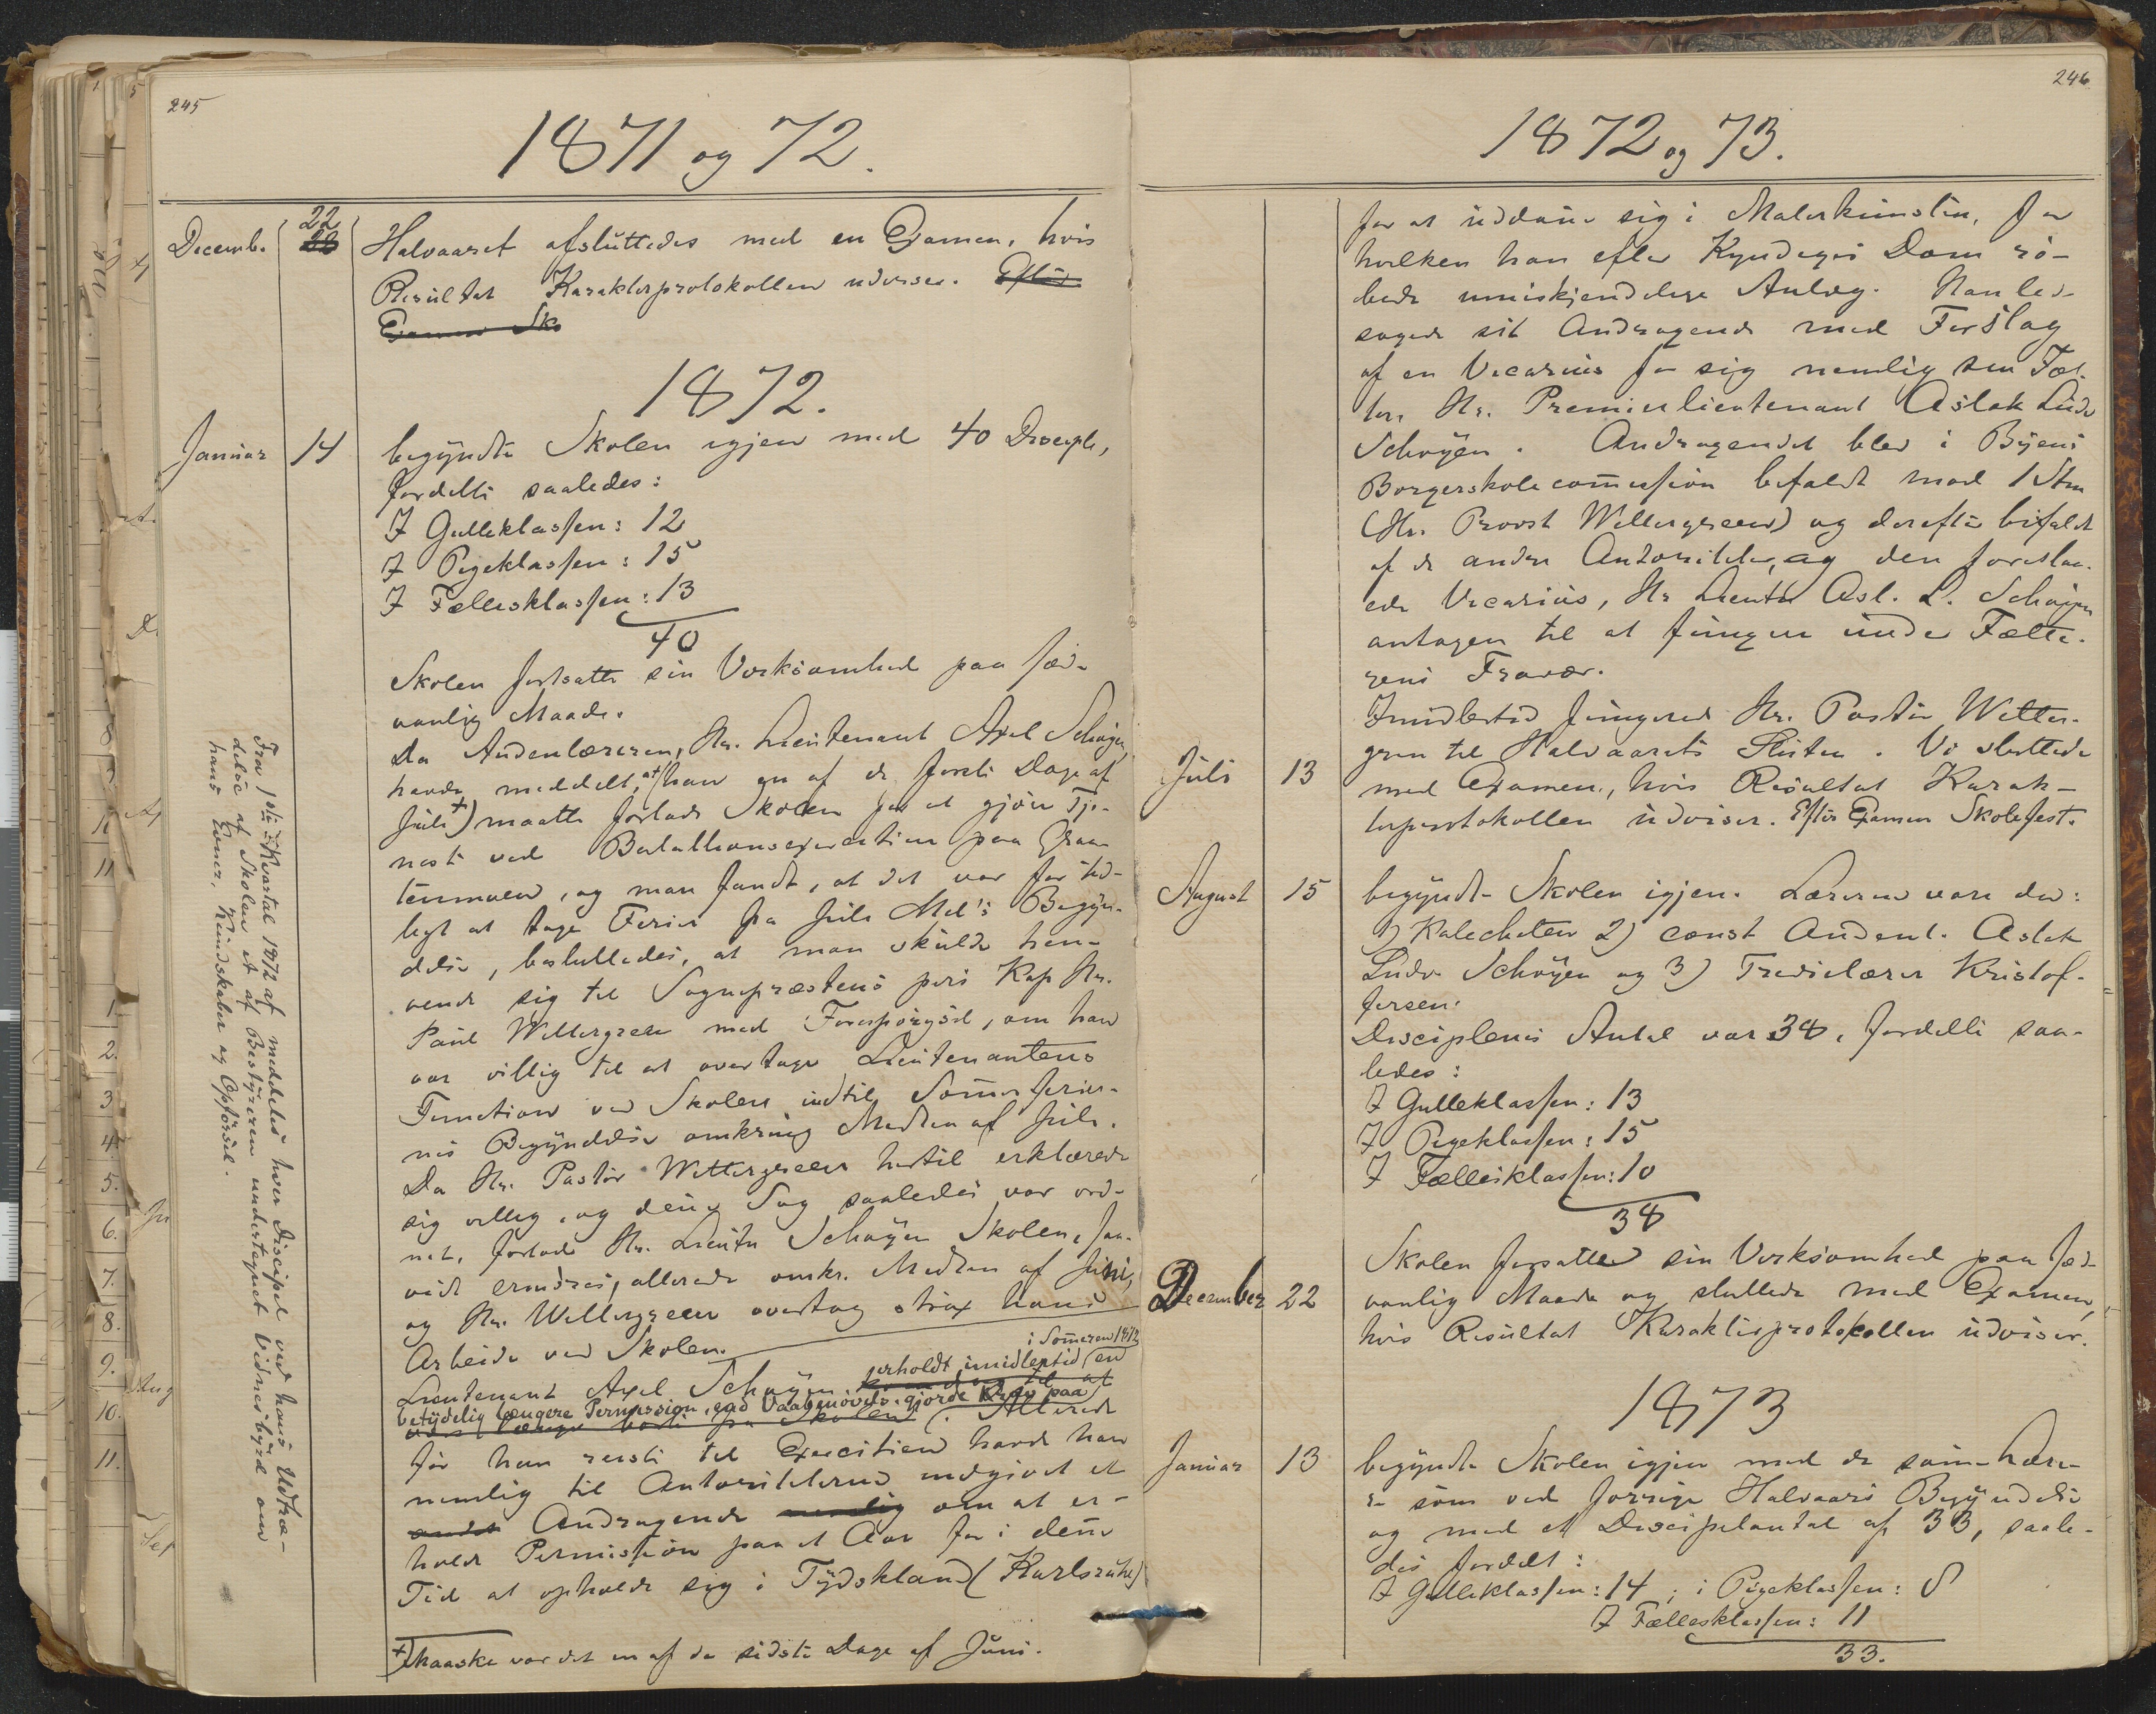 245
1871 og 72.
Decemb. 22 Halvaaret afsluttedes med en Examen, hvis
Resultat Karakterprotokollen udviser. Efter
Examen Sko
1872.
Januar 14 begyndte Skolen igjen med 40 Disciple,
fordelte saaledes:
I Gutteklassen: 12
I Pigeklassen: 15
I Fællesklassen: 13
40
Skolen fortsatte sin Virksomhed paa sæd-
vanlig Maade.
Da Andenlæreren, Hr. Lieutenant Axel Schøyen,
havde meddelt, at han en af de første Dage af
Juli +) maatte forlade Skolen for at gjøre Tje-
neste ved Bataillonsexercitien paa Gra-
tenmoen, og man fandt, at det var for tid-
ligt at tage Ferier fra Juli Md's Begyn-
delse, besluttedes, at man skulde hen-
vende sig til Sognepræstens pers Kap Hr.
Paul Wettergreen med Forespørgsel, om han
var villig til at overtage Lieutenantens
Function ved Skolen indtil Somerferier-
nes Begyndelse omkring Midten af Juli.
Da Hr. Pastor Wettergreen hertil erklærede
sig villig, og denne Sag saaledes var ord-
net, forlod Hr. Lieutn Schøyen Skolen, saa-
vidt erindres, allerede omkr. Midten af Juni,
og Hr. Wettergreen overtog strax hans
Arbeide ved Skolen.
i Someren 1872
Lieutenant Axel Schøyen erholdt imidlertid en
betydelig længere Permission, end Vaabenøvels. gjorde Krav paa
Allerede
før han reiste til Exercitien havde han
nemlig til Autoriteterne indgivet et
andet Andragende nemlig om at er-
holde Permission paa et Aar for i denne
Tid at opholde sig i Tydskland (Karlsruhe)
+) Maaske var det en af de sidste Dage af Juni.
Fra 1ste Kvartal 1872 af meddeles hver Discipel ved hans Udtræ-
delse af Skolen et af Bestyreren undertegnet Vidnesbyrd om
hans Evner, Kundskaber og Opførsel.
246
1872 og 73.
for at uddanne sig i Malerkunsten, for
hvilken han efter Kyndiges Dom rø-
bede umiskjendelige Anlæg. Han led-
sagede sit Andragende med Forslag
af en Vicarius for sig nemlig sin Fæt-
ter, Hr. Premierlieutenant Aslak Ludv
Schøyen. Andragendet blev i Byens
Borgerskolecommission bifaldt mod 1 Stm
(Hr. Provst Wettergreen) og derefter bifaldt
af de andre Autoriteter, og den foreslaa-
ede Vicarius, Hr Lieutn Asl. L. Schøyen
antagen til at fungere under Fætte-
rens Fravær.
Imidlertid fungered Hr. Pastor Wetter-
green til Halvaarets Slutn. Vi sluttede
Juli 13 med Examen, hvis Resultat Karak-
terprotokollen udviser. Efter Examen Skolefest.
August 15 begyndte Skolen igjen. Lærerne vare da:
1) Katecheten 2) const Andenl. Aslak
Ludv Schøyen og 3) Tredielærer Kristof-
fersen.
Disciplenes Antal var 38, fordelte saa-
ledes:
I Gutteklassen: 13
I Pigeklassen: 15
I Fællesklassen: 10
38
Skolen forsatte sin Virksomhed paa sæd-
December 22 vanlig Maade og sluttede med Examen,
hvis Resultat Karakterprotokollen udviser.
1873
Januar 13 begyndte Skolen igjen med de samme Lære-
re som ved forrige Halvaars Begyndelse
og med et Discipelantal af 33, saale-
des fordelt:
I Gutteklassen: 14; i Pigeklassen: 8
I Fællesklassen: 11
33.